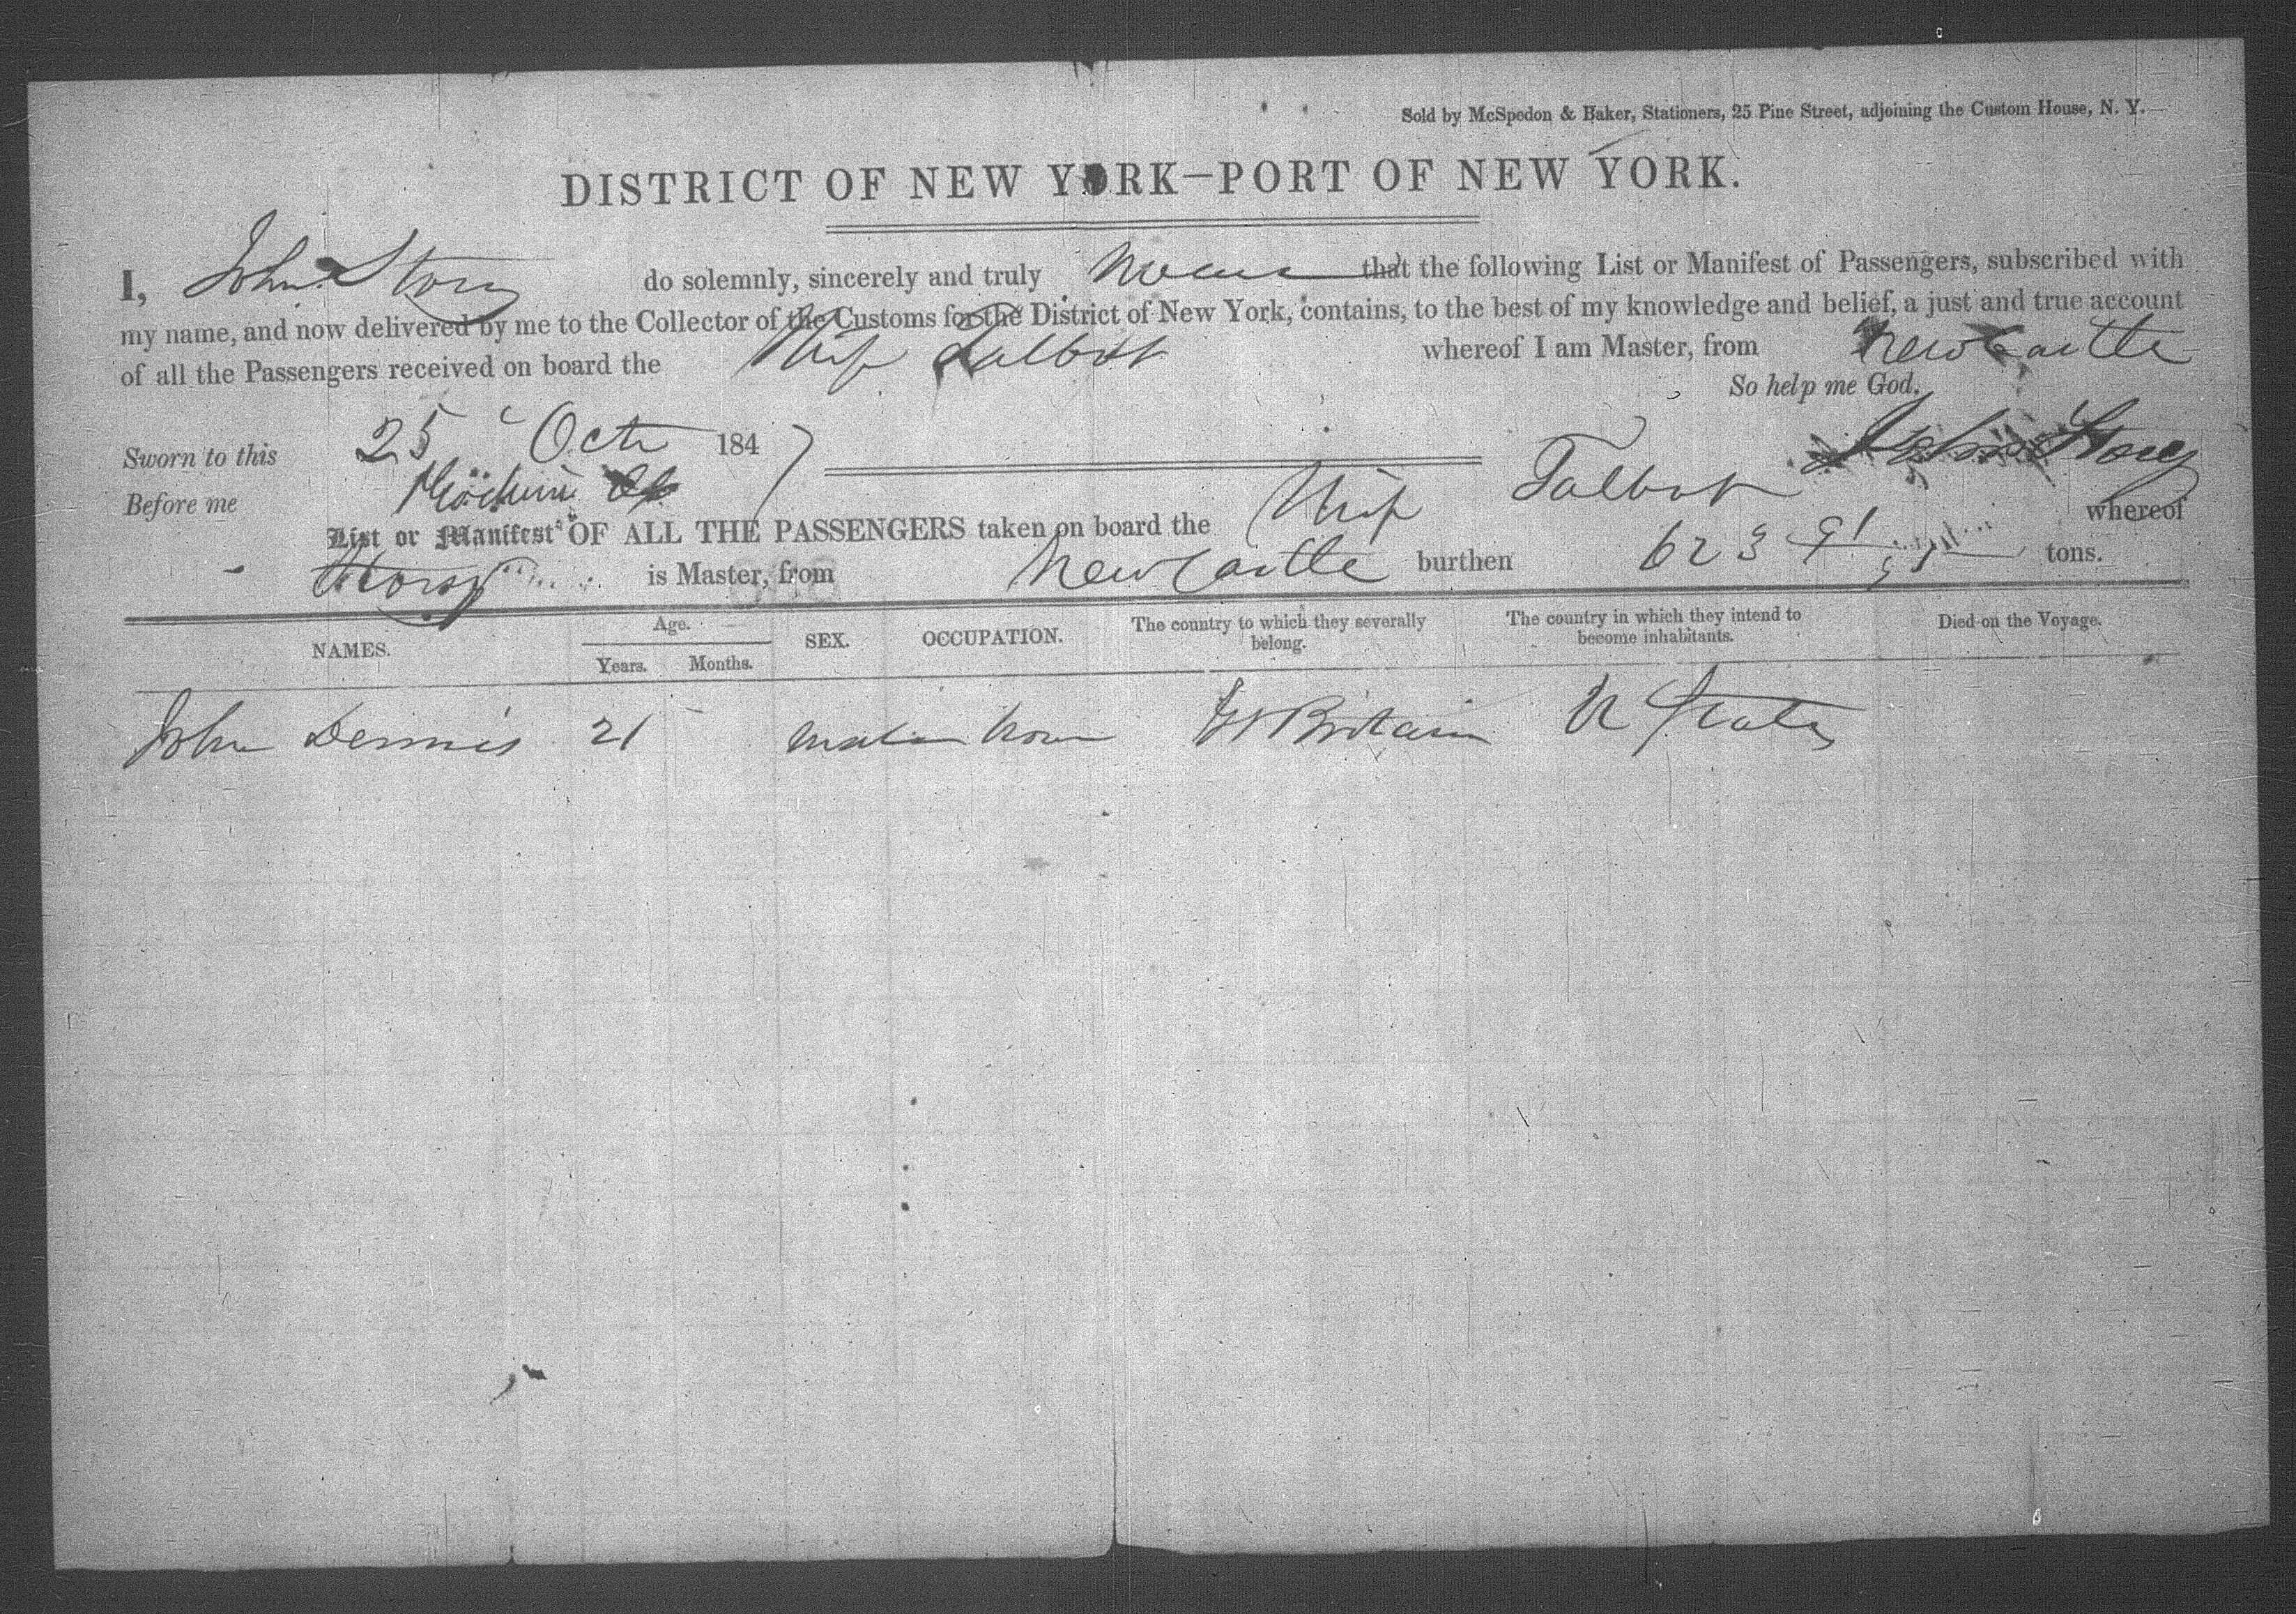 Sold by McSpedon & Baker, Stationers, 25 Pine Street, adjoining the Custom House, N. Y.
DISTRICT OF NEW YORK—PORT OF NEW YORK.
I, John Story do solemnly, sincerely and truly swear that the following List or Manifest of Passengers, subscribed with
my name, and now delivered by me to the Collector of the Customs for the District of New York, contains, to the best of my knowledge and belief, a just and true account
of all the Passengers received on board the Ship Talbot whereof I am Master, from New Castle
So help me God.
Sworn to this 25 Oct 1847 John Story
Before me
List or Manifest OF ALL THE PASSENGERS taken on board the Ship Talbot whereof
Story is Master, from New Castle burthen 623 91/95 tons.
NAMES. Age. Years. Months. SEX. OCCUPATION. The country to which they severally belong. The country in which they intend to become inhabitants. Died on the Voyage.
John Dennis 21 male none Gt Britain U States